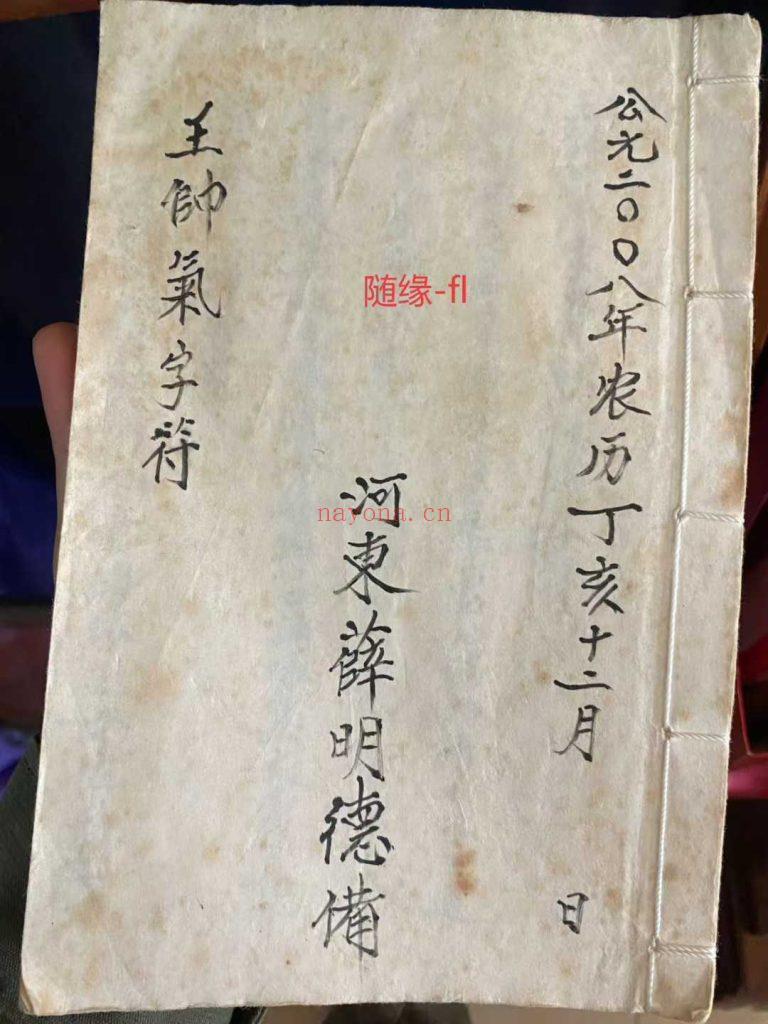 公元二〇〇八年农历丁亥十二月 日
河東薛明德備
王帥氣字符
随缘-fl
nayona.cn